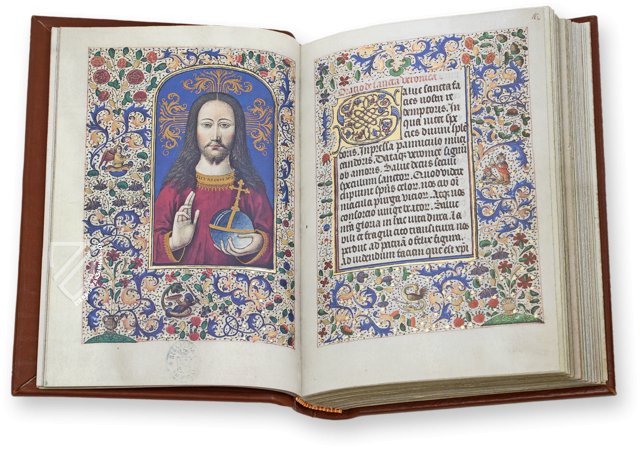 Oratio de sancta veronica
Salue sancta fa
cies nostri re
demptoris. In
qua nitet spe
cies diuini sple
doris. Inpressa panniculo niuei
candoris. Dataq; veronice signū
ob amoris. Salue decus seculi
speculum sanctor. Quod videre
cupiunt spūs celor. nos ab oī
macula purga vicior. Atq; nos
consorcio iunge beator. Salue
nra gloria in hac vita dura. la
bili et fragili cito transitura. nos
perduc ad patriā o felix figura.
ad videndum faciem que est xpi